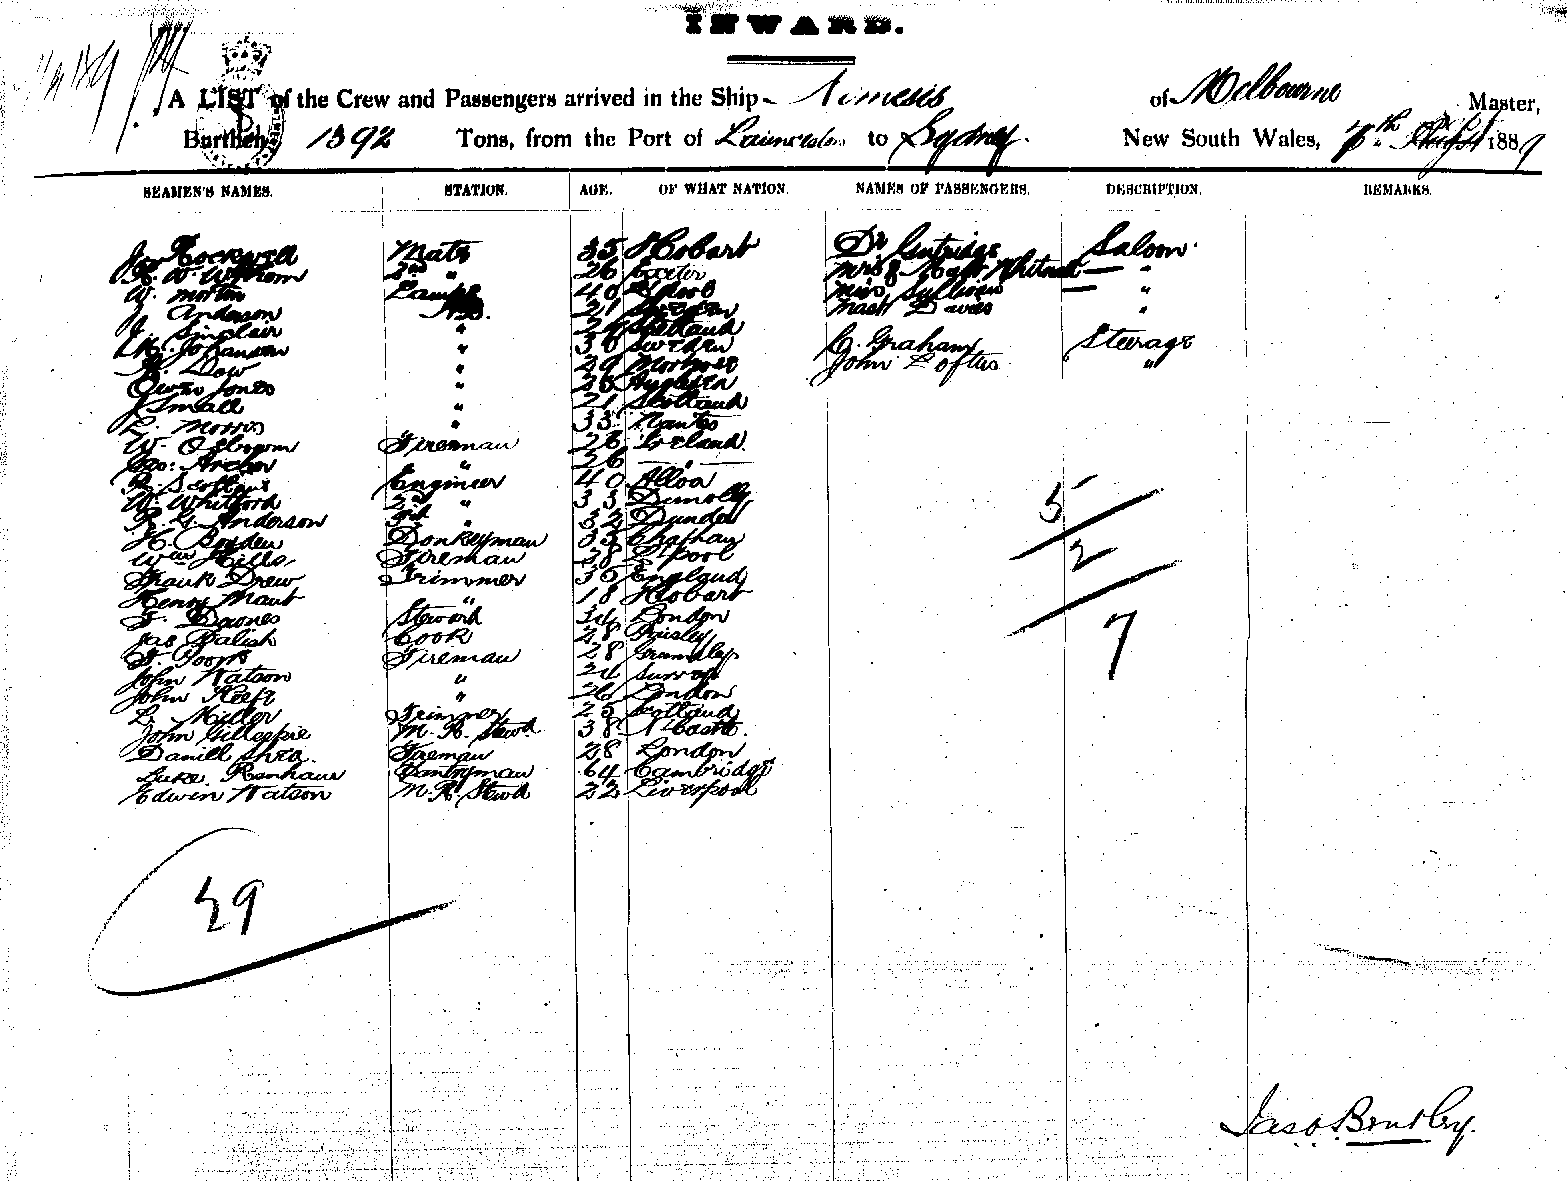 INWARD.
A LIST of the Crew and Passengers arrived in the Ship Nemesis of Melbourne Master,
Burthen 1392 Tons, from the Port of Launceston to Sydney. New South Wales, 7th 1889
SEAMEN'S NAMES. STATION. AGE. OF WHAT NATION. NAMES OF PASSENGERS. DESCRIPTION. REMARKS.
J. Rockwell Mate 35 Hobart Dr Saloon
2nd " 26 Exeter Mrs & "
W. Morton Lamps 40 L'pool Miss Sullivan "
J. Anderson A.B. 21 Sweden Mast Davies "
J. Sinclair " 26 Scotland
Johanson " 30 Sweden C. Graham Steerage
Dow " 29 Montrose John Loftus "
Owen Jones " 28 Anglesea
J Small " 21 Scotland
L. Morris " 33 Nantes
W. Osborom Fireman 26 Ireland.
Geo: Archer " 26 "
R Scollay Engineer 40 Alloa
W. Whitford 2nd " 33 Dunolly
R. G. Anderson 3rd " 32 Dundee
H. Boyden Donkeyman 33 Chatham
Wm Hills, Fireman 28 L'pool
Frank Drew Trimmer 35 England
Henry Maut " 18 Hobart
F. Downes Steward 34 London
Jas Dalish Cook 28 Paisley
F. Poork Fireman 28
John Watson " 24 Surrey
John Keefe " 26 London
L. Miller Trimmer 25 Scotland
John Gillespie M. R. Stewd. 38 N Castle.
Daniel Shea. Fireman 28 London
Luke Renhaus Pantryman 64 Cambridge
Edwin Watson M. R. Stewd 22 Liverpool
5
2
7
29
Jas. Bentley.